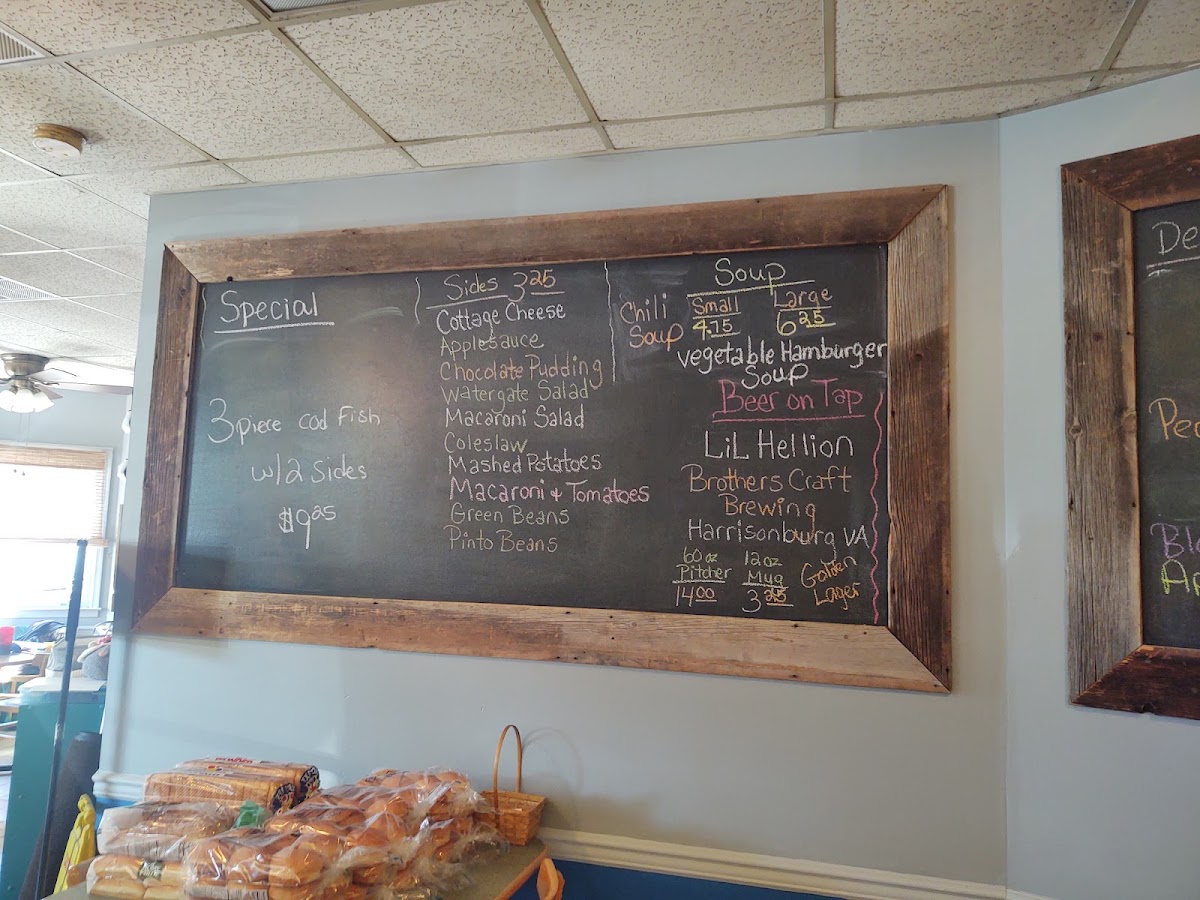 Special
3 piece cod Fish
w/2 sides
$9.25
Sides 3.25
Cottage Cheese
Applesauce
Chocolate Pudding
Watergate Salad
Macaroni Salad
Coleslaw
Mashed Potatoes
Macaroni & Tomatoes
Green Beans
Pinto Beans
Soup
Small Large
Chili Soup 4.75 6.25
vegetable Hamburger
Soup
Beer on Tap
LiL Hellion
Brothers Craft
Brewing
Harrisonburg VA
60 oz Pitcher 14.00
12 oz Mug
Golden Lager
De
Pec
Bl